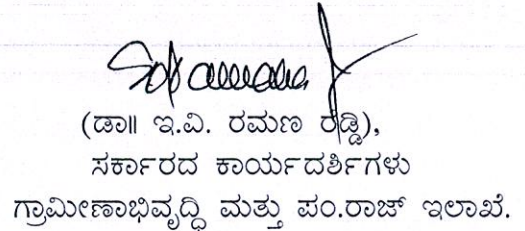 (ಡಾ॥ ಇ.ವಿ. ರಮಣ ರೆಡ್ಡಿ),
ಸರ್ಕಾರದ ಕಾರ್ಯದರ್ಶಿಗಳು
ಗ್ರಾಮೀಣಾಭಿವೃದ್ಧಿ ಮತ್ತು ಪಂ.ರಾಜ್ ಇಲಾಖೆ.